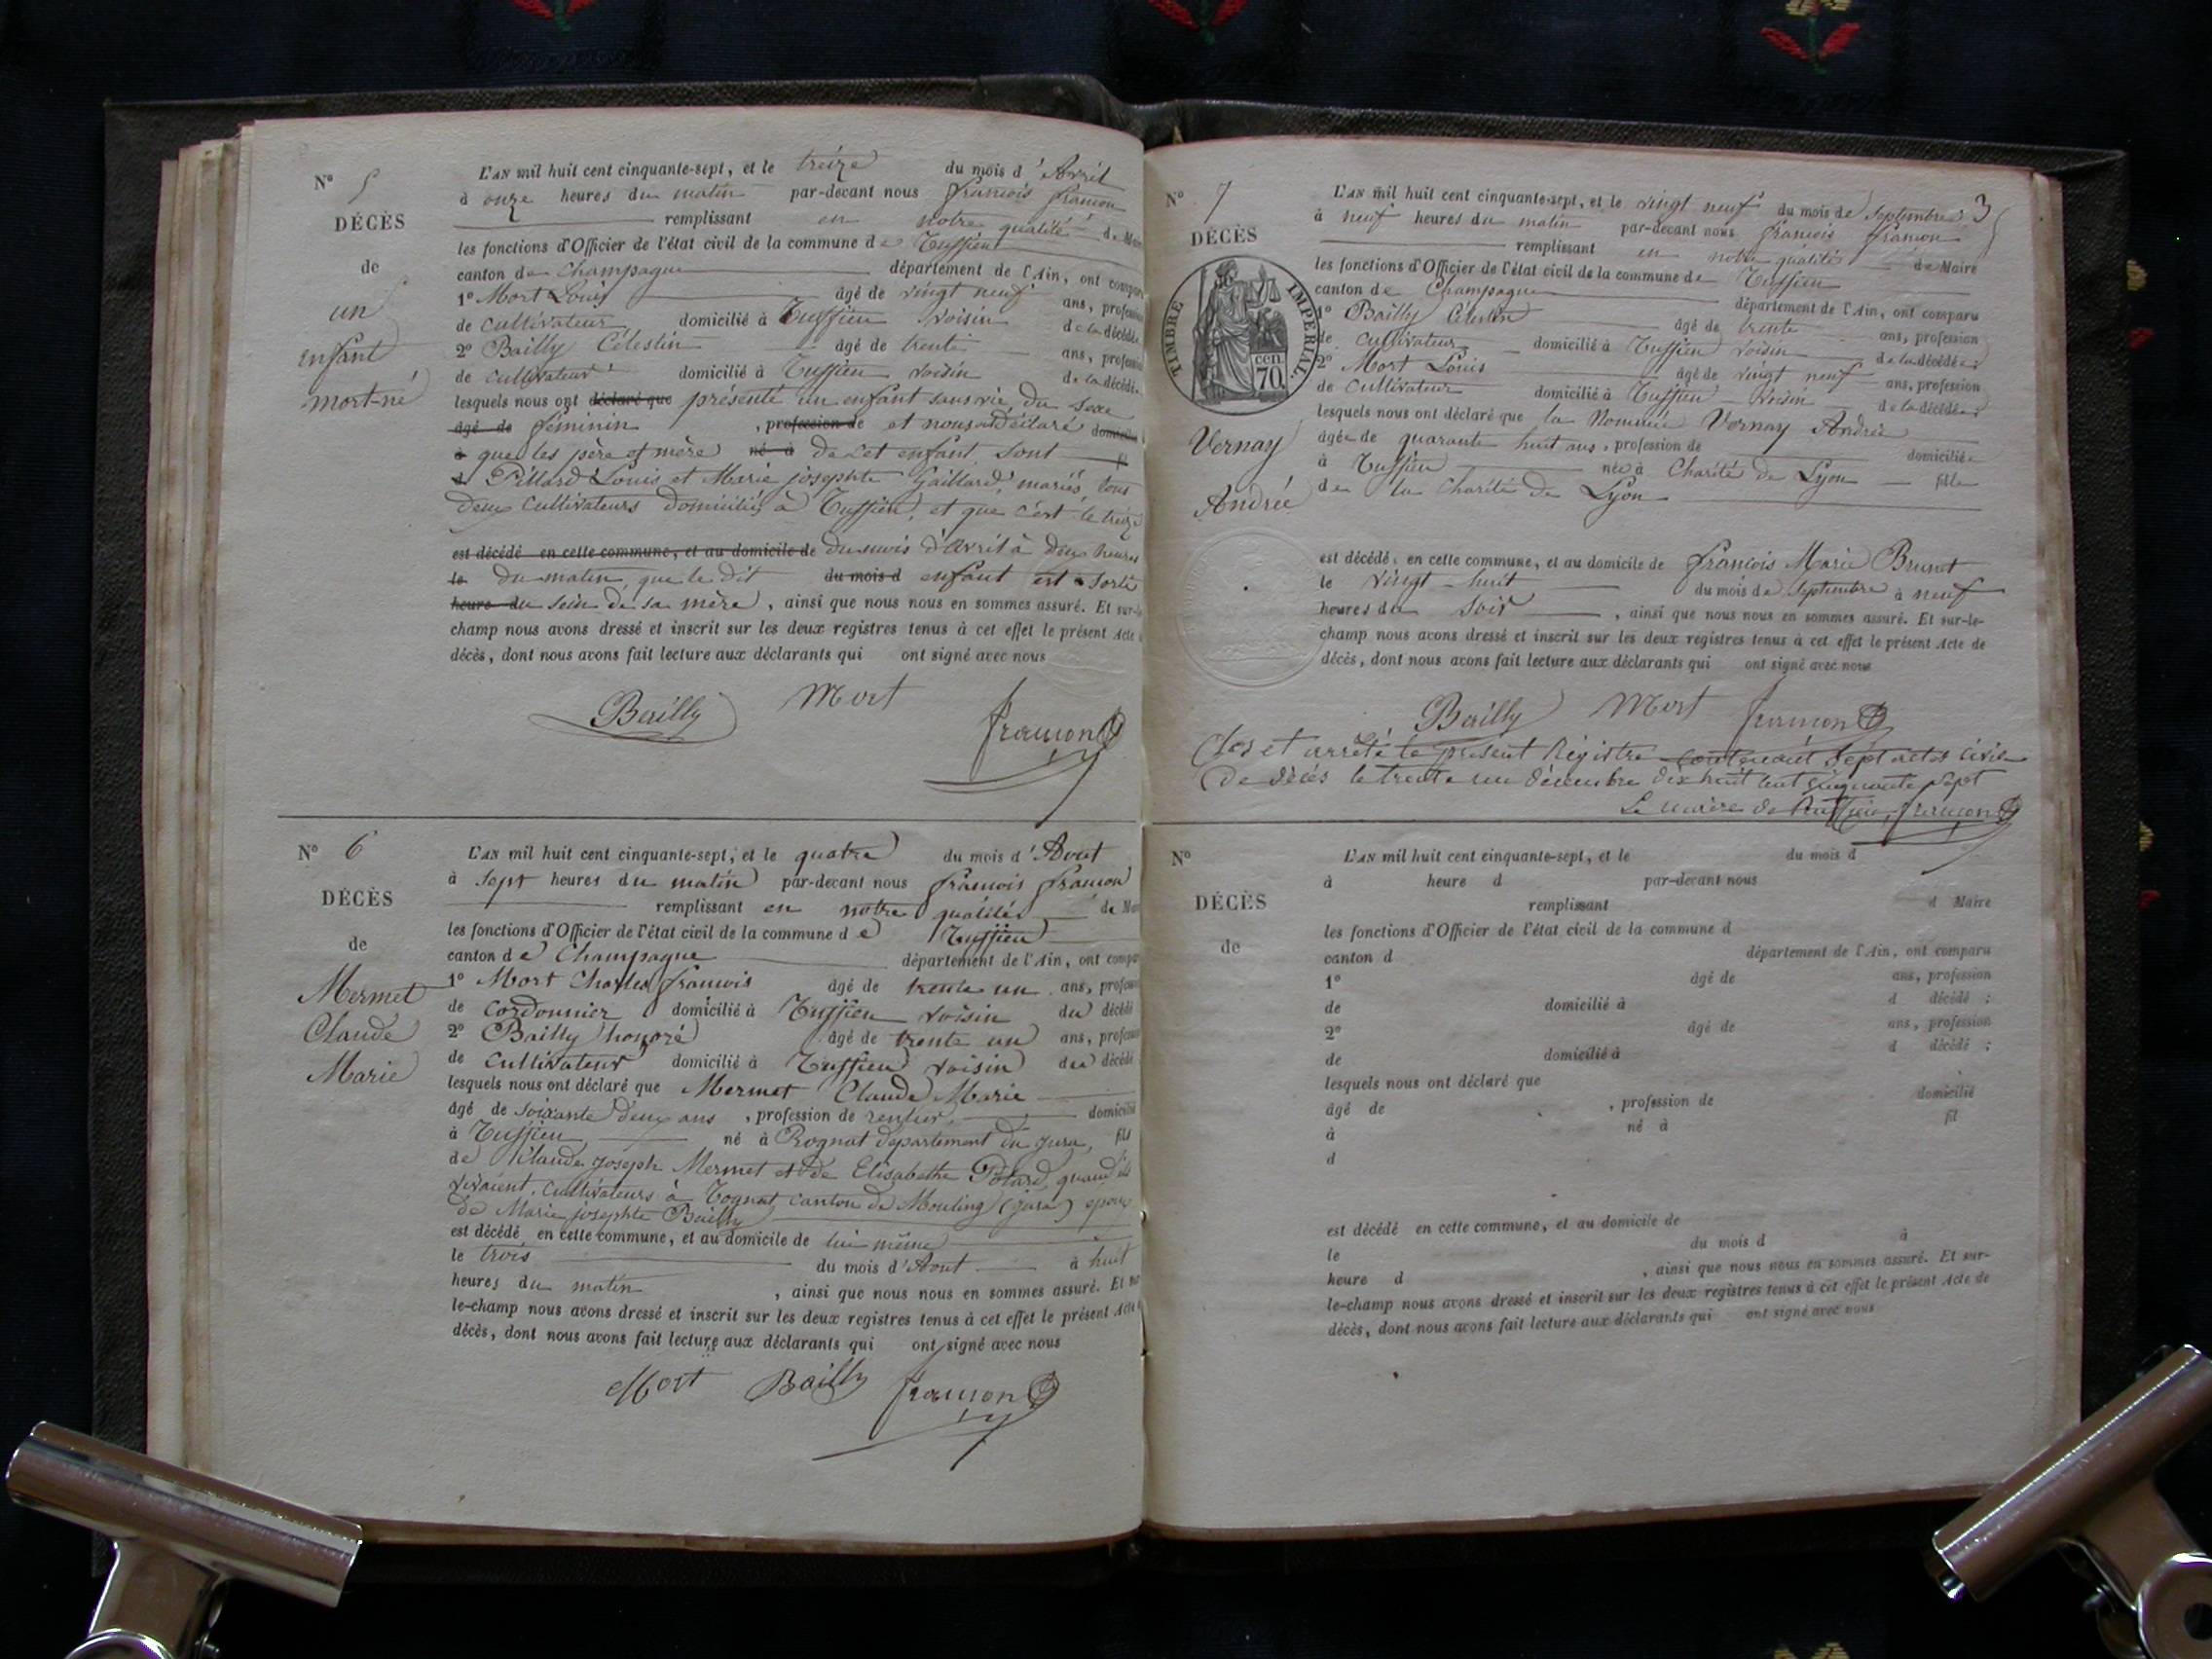 N° 5
DÉCÈS
de
un
enfant
mort-né
L'AN mil huit cent cinquante-sept, et le treize du mois d'Avril
à onze heures du matin par-devant nous françois framon
remplissant en notre qualité de Mai
les fonctions d'Officier de l'état civil de la commune de
canton de Champagne département de l'Ain, ont compar
1° Mort Louis âgé de vingt neuf ans, profession
de cultivateur domicilié à voisin de la décédée
2° Bailly Célestin âgé de trente ans, profession
de cultivateur domicilié à voisin de la décédée
lesquels nous ont déclaré que présenté un enfant sans vie, du sexe
âgé de féminin, profession de et nous ont déclaré domicilié
à que les père et mère né à de cet enfant sont fil
d Pillard Louis et Marie josephte Gaillard, mariés, tous
deux cultivateurs domiciliés à et que c'est le treize
est décédé en cette commune, et au domicile de du mois d'avril à deux heures
le du matin que le dit du mois d enfant est sorti
heure du sein de sa mère, ainsi que nous nous en sommes assuré. Et sur-le
champ nous avons dressé et inscrit sur les deux registres tenus à cet effet le présent Acte
décès, dont nous avons fait lecture aux déclarants qui ont signé avec nous
Bailly Mort framon
N° 6
DÉCÈS
de
Mermet
Claude
Marie
L'AN mil huit cent cinquante-sept, et le quatre du mois d'Aout
à sept heures du matin par-devant nous françois framon
remplissant en notre qualité de Mai
les fonctions d'Officier de l'état civil de la commune de
canton de Champagne département de l'Ain, ont compa
1° Mort Charles françois âgé de trente un ans, profession
de cordonnier domicilié à voisin du décédé
2° Bailly honoré âgé de trente un ans, profession
de cultivateur domicilié à voisin du décédé
lesquels nous ont déclaré que Mermet Claude Marie
âgé de soixante deux ans, profession de rentier, domicilié
à né à Rognat département du jura, fils
de Claude joseph Mermet et de Elisabethe quand ils
vivaient, cultivateurs à canton de (jura) époux
de Marie josephte Bailly
est décédé en cette commune, et au domicile de lui même
le trois du mois d'Aout à huit
heures du matin, ainsi que nous nous en sommes assuré. Et sur
le-champ nous avons dressé et inscrit sur les deux registres tenus à cet effet le présent Acte
décès, dont nous avons fait lecture aux déclarants qui ont signé avec nous
Mort Bailly framon
N° 7
DÉCÈS
TIMBRE IMPERIAL.
cen. 70.
Vernay
Andrée
3
L'AN mil huit cent cinquante-sept, et le vingt neuf du mois de Septembre
à neuf heures du matin par-devant nous françois framon
remplissant en notre qualité de Maire
les fonctions d'Officier de l'état civil de la commune de
canton de Champagne département de l'Ain, ont comparu
1° Bailly Célestin âgé de trente ans, profession
de cultivateur domicilié à voisin de la décédée;
2° Mort Louis âgé de vingt neuf ans, profession
de cultivateur domicilié à voisin de la décédée;
lesquels nous ont déclaré que la Nommée Vernay Andrée
âgée de quarante huit ans, profession de domiciliée
à née à Charité de Lyon fille
de la Charité de Lyon
est décédée en cette commune, et au domicile de françois Marie Brunet
le vingt-huit du mois de Septembre à neuf
heures du soir, ainsi que nous nous en sommes assuré. Et sur-le-
champ nous avons dressé et inscrit sur les deux registres tenus à cet effet le présent Acte de
décès, dont nous avons fait lecture aux déclarants qui ont signé avec nous
Bailly Mort framon
Clos et arrêté le présent Régistre contenant Sept actes civils
de décès le trente un décembre dix huit cent cinquante sept
Le maire de framon
N°
DÉCÈS
de
L'AN mil huit cent cinquante-sept, et le du mois d
à heure d par-devant nous
remplissant d Maire
les fonctions d'Officier de l'état civil de la commune d
canton d département de l'Ain, ont comparu
1° âgé de ans, profession
de domicilié à d décédé ;
2° âgé de ans, profession
de domicilié à d décédé ;
lesquels nous ont déclaré que
âgé de , profession de domicilié
à né à fil
d
est décédé en cette commune, et au domicile de
le du mois d à
heure d , ainsi que nous nous en sommes assuré. Et sur-
le-champ nous avons dressé et inscrit sur les deux registres tenus à cet effet le présent Acte de
décès, dont nous avons fait lecture aux déclarants qui ont signé avec nous